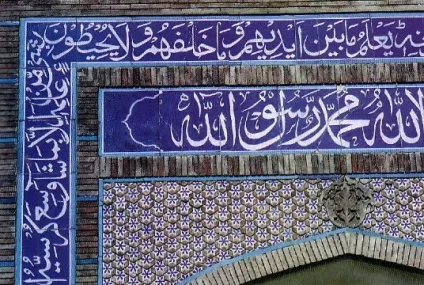 نه يعلم ما بين ايديهم وما خلفهم ولا يحيطون
بشيء من علمه الا بما شاء وسع كرسيه
الله محمد رسول الله